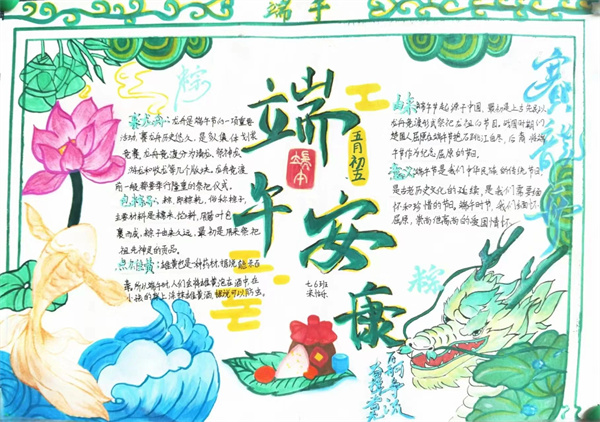 端午
粽
赛龙舟
端午安康
五月初五
端午
赛龙舟:龙舟是端午节的一项重要
活动,赛龙舟历史悠久,是队
竞赛,龙舟竞渡分为请龙、祭神、
游龙和收龙等几个版块,龙舟竞渡
前一般都要举行隆重的祭祀仪式。
包粽子:粽,即粽籼,俗称粽子,
主要材料是糯米、馅料,用箬叶包
裹而成,粽子由来久远,最初是用来祭祀
祖先神灵的贡品。
点雄黄:雄黄也是一种药材,据说能杀百
毒,所以端午时人们会将雄黄泡在酒中,在
小孩的额上涂抹雄黄酒,据说可以防虫。
由来:端午节起源于中国,最初是上古先民以
龙舟竞渡形式祭祀龙祖的节日,战国时期的
楚国人屈原在端午节抱石跳江自尽,后用将端
午节作为纪念屈原的节日。
意义:端午节是我们中华民族的传统节日,
是古老历史文化的延续,是我们需要缅
怀和珍惜的节日,端午时节,我们缅怀
屈原,崇尚他高尚的爱国情怀。
七6班
粽
百舸争流